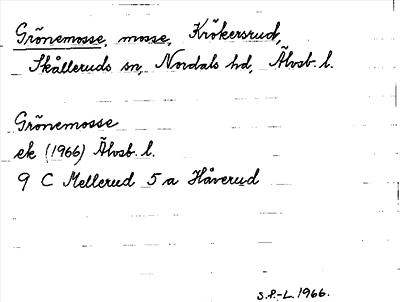 Grönemosse, mosse, Krökersrud,
Skålleruds sn, Nordals hd, Älvsb. l.
Grönemosse
ek (1966) Älvsb. l.
9 C Mellerud 5 a Håverud
S.F.-L. 1966.